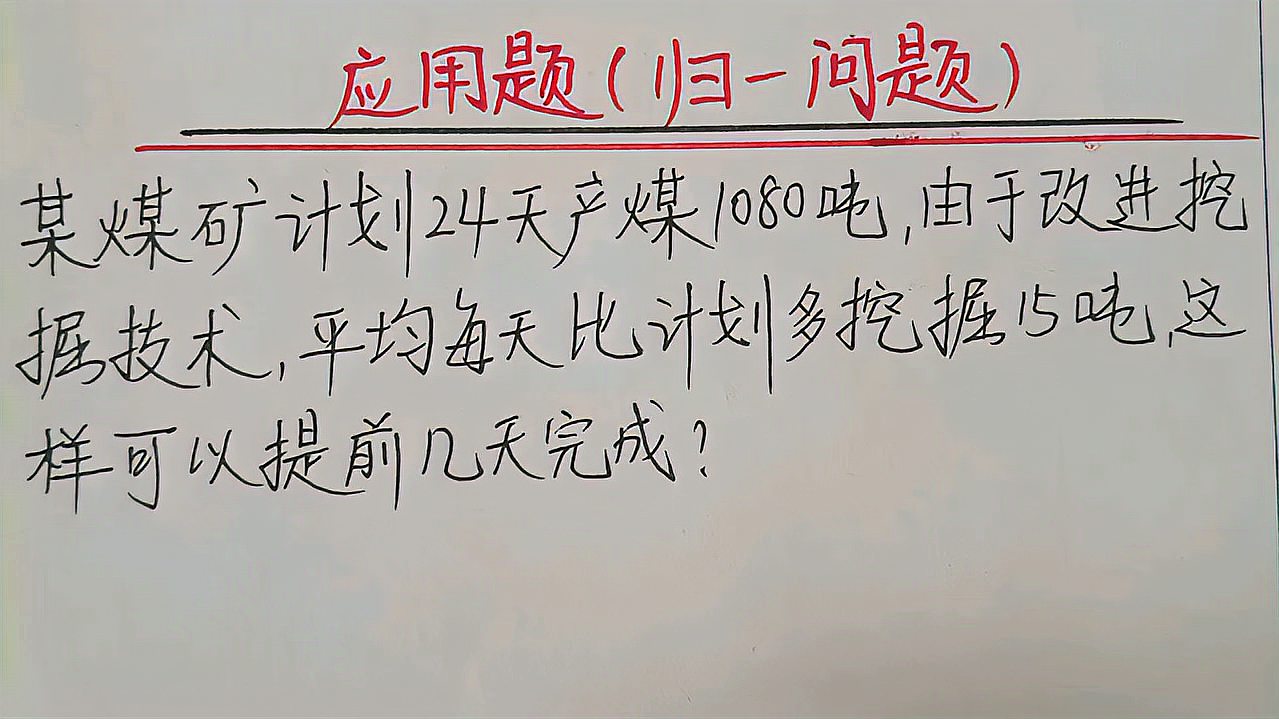 应用题(归一问题)
某煤矿计划24天产煤1080吨,由于改进挖
掘技术,平均每天比计划多挖掘15吨,这
样可以提前几天完成?